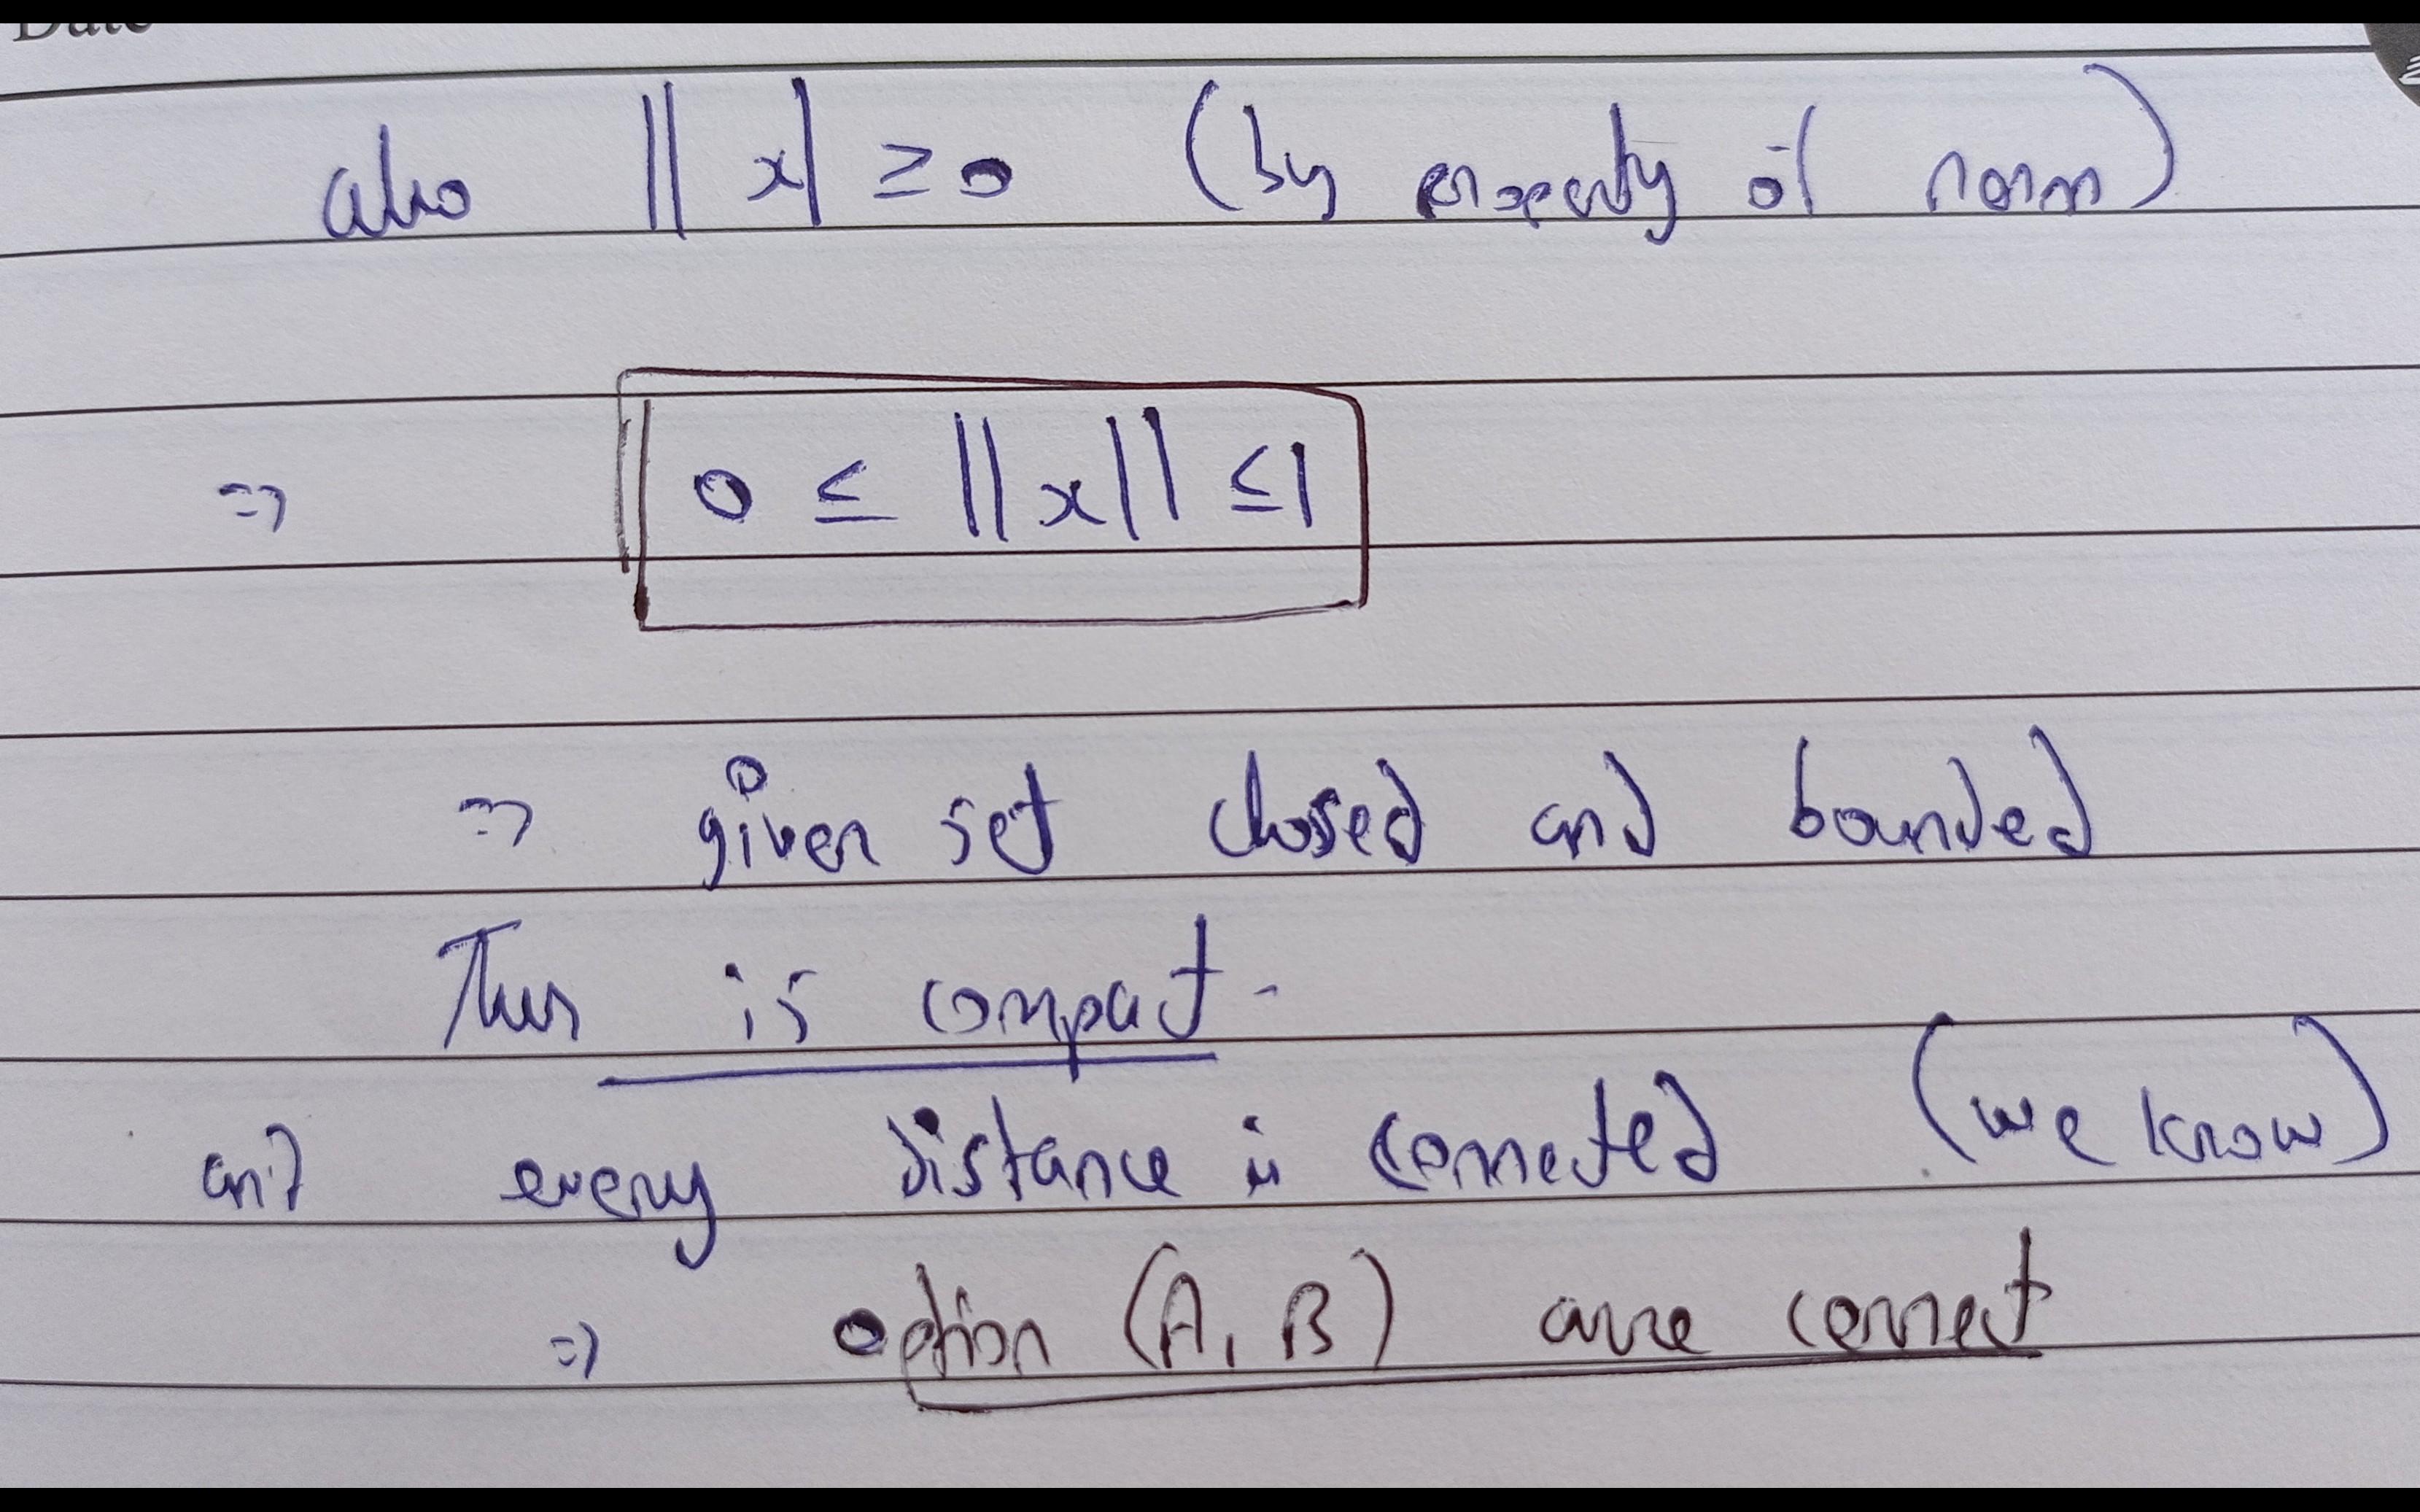 Date
also || x| ≥ 0 (by property of norm)
=> 0 ≤ ||x|| ≤ 1
=> given set closed and bounded
Thus is compact -
and every distance is connected (we know)
=> option (A, B) are correct